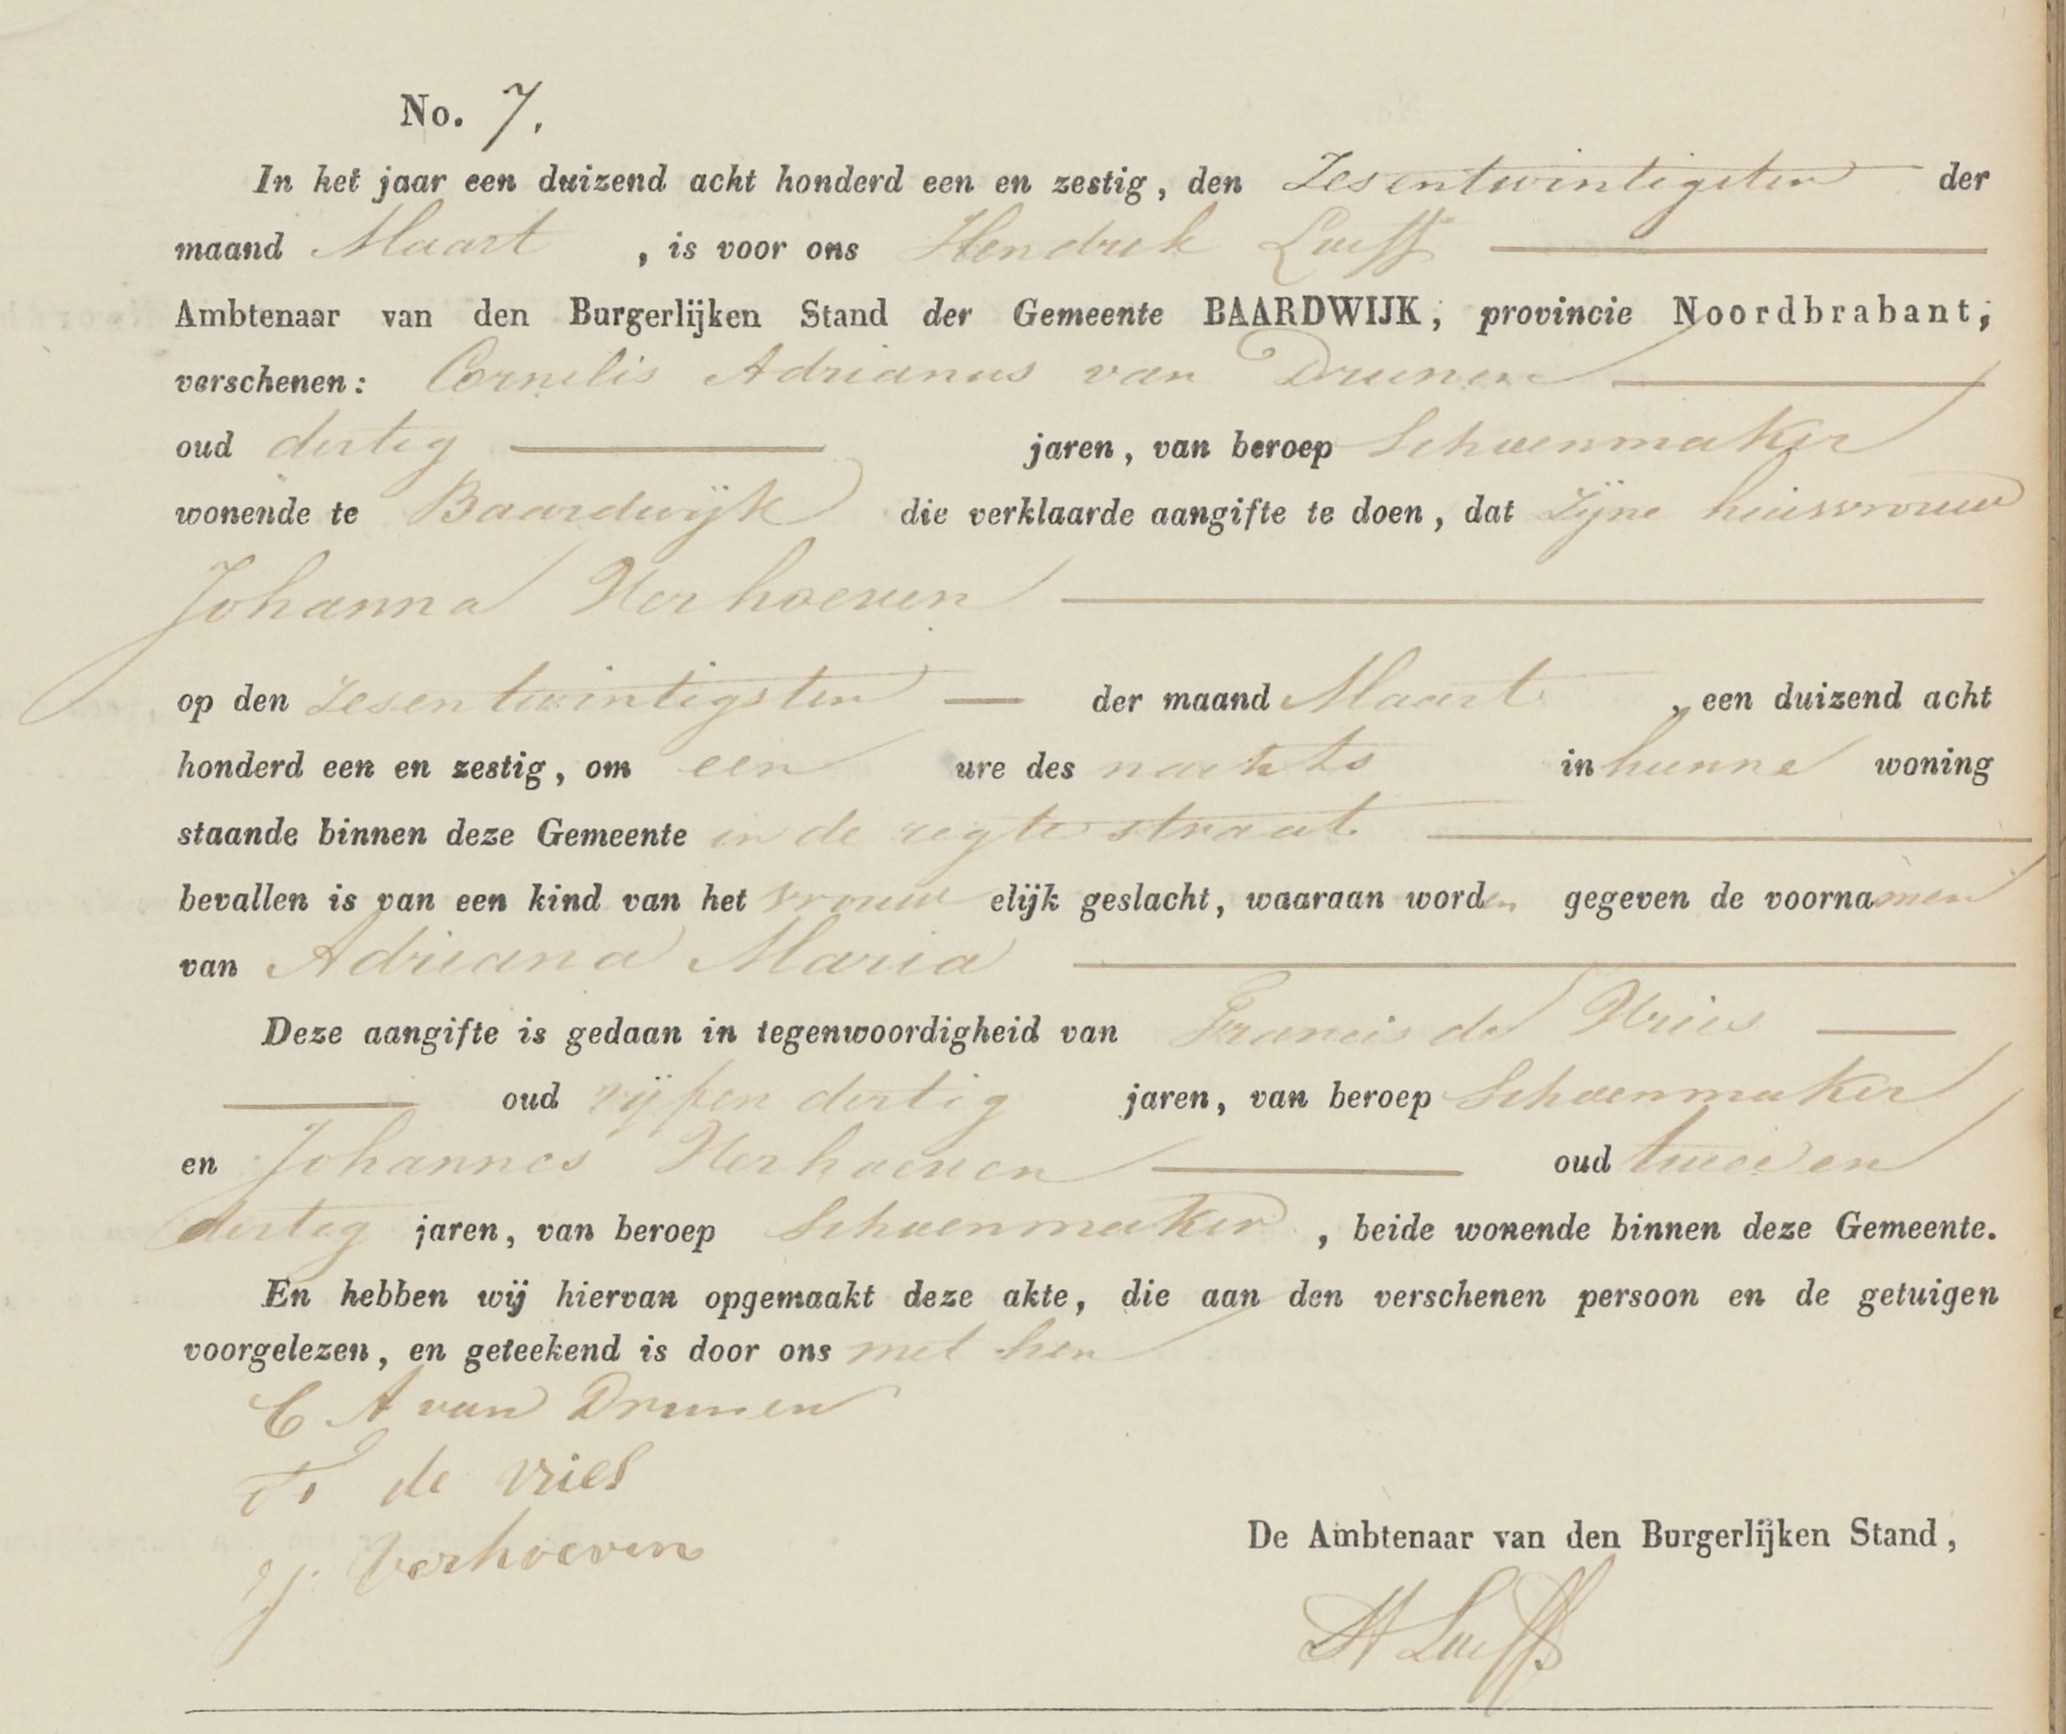 No. 7.
In het jaar een duizend acht honderd een en zestig, den Zesentwintigsten der
maand Maart , is voor ons Hendrik Luijff
Ambtenaar van den Burgerlijken Stand der Gemeente BAARDWIJK, provincie Noordbrabant,
verschenen: Cornelis Adrianus van Drunen
oud dertig jaren, van beroep Schoenmaker
wonende te Baardwijk die verklaarde aangifte te doen, dat Zijne huisvrouw
Johanna Verhoeven
op den Zesentwintigsten der maand Maart , een duizend acht
honderd een en zestig, om een ure des nachts in hunne woning
staande binnen deze Gemeente in de regte straat
bevallen is van een kind van het vrouwelijk geslacht, waaraan worden gegeven de voornamen
van Adriana Maria
Deze aangifte is gedaan in tegenwoordigheid van Francis de Vries
oud vijfen dertig jaren, van beroep Schoenmaker
en Johannes Verhoeven oud twee en
dertig jaren, van beroep Schoenmaker , beide wonende binnen deze Gemeente.
En hebben wij hiervan opgemaakt deze akte, die aan den verschenen persoon en de getuigen
voorgelezen, en geteekend is door ons met hen
C A van Drunen
F. de vries
J. Verhoeven
De Ambtenaar van den Burgerlijken Stand,
H Luijff